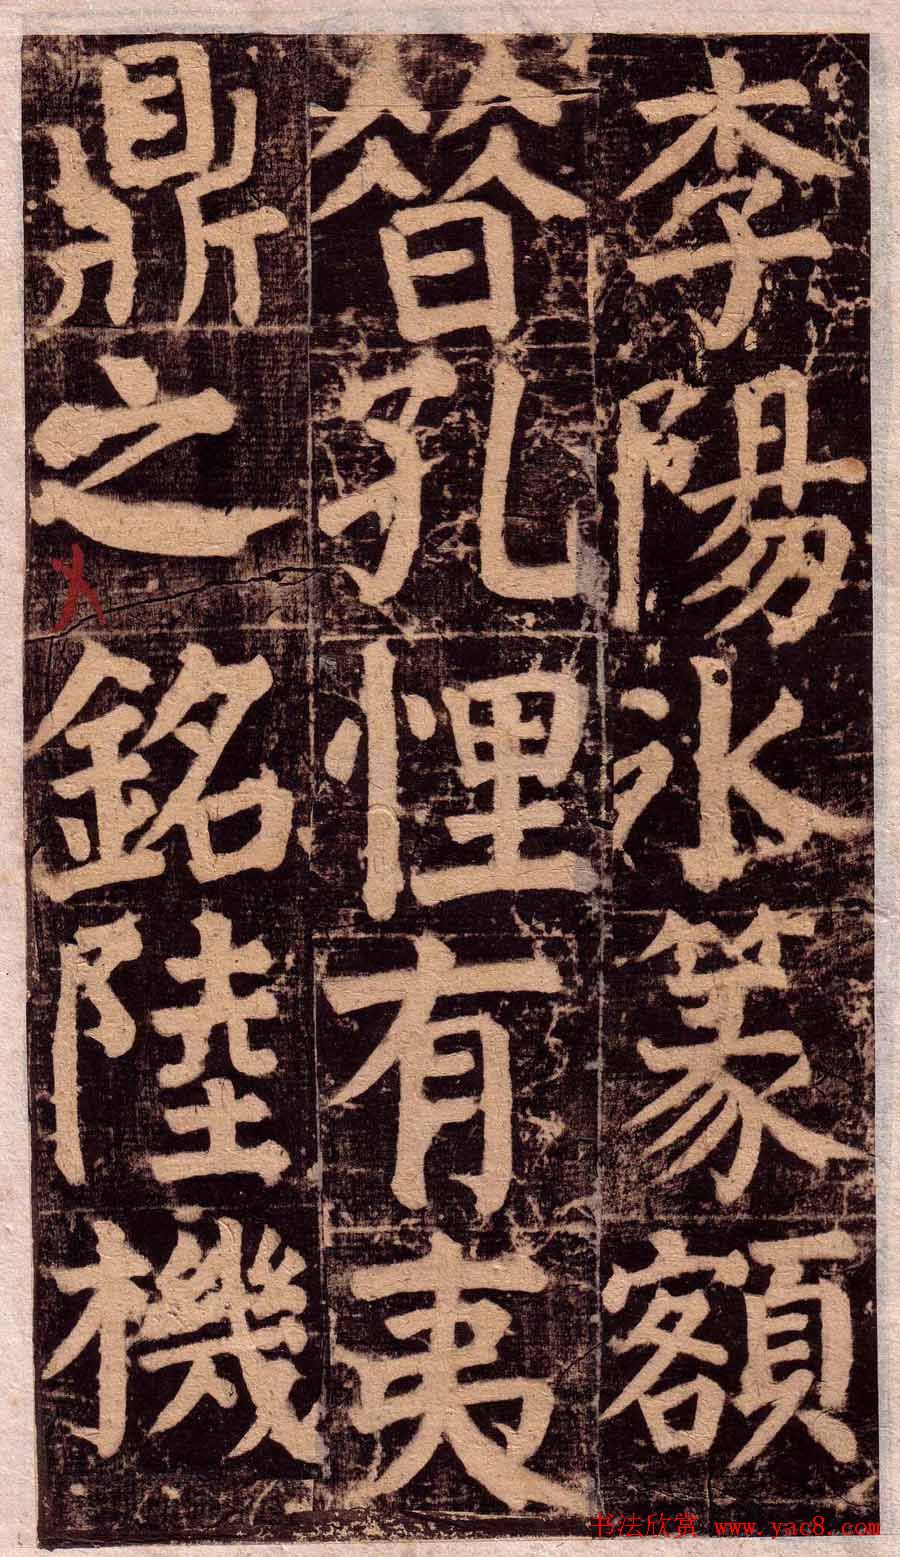 李陽冰篆額
昔孔悝有夷
鼎之銘陸機
书法欣赏 www.yac8.com